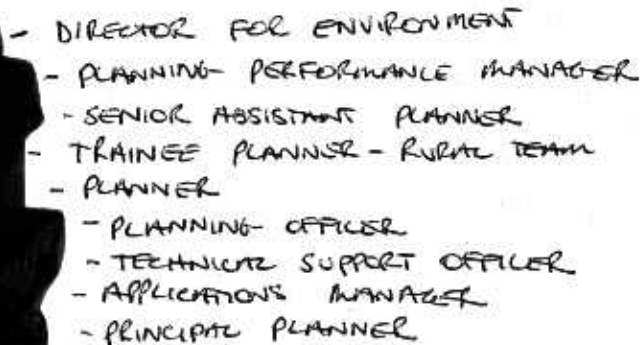 - DIRECTOR FOR ENVIRONMENT
- PLANNING PERFORMANCE MANAGER
- SENIOR ASSISTANT PLANNER
- TRAINEE PLANNER - RURAL TEAM
- PLANNER
- PLANNING OFFICER
- TECHNICAL SUPPORT OFFICER
- APPLICATIONS MANAGER
- PRINCIPAL PLANNER